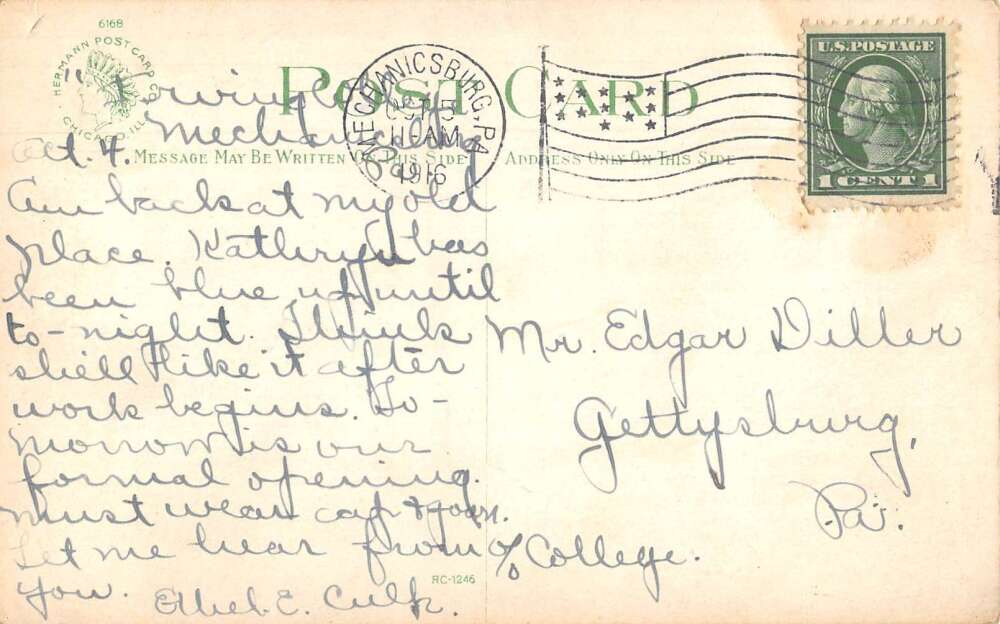 6168
HERMANN POST CARD CO.
CHICAGO, ILL.
POST CARD
MESSAGE MAY BE WRITTEN ON THIS SIDE
ADDRESS ONLY ON THIS SIDE
MECHANICSBURG, PA.
OCT 5
11 AM
1916
U.S. POSTAGE
1 CENT 1
"Irving"
Mechanicsburg
Oct. 4.
Am back at my old
place. Kathryn has
been blue up until
to-night. Think
shell like it after
work begins. To-
morrow is our
formal opening.
Must wear cap & gown.
Let me hear from
you. Ethel E. Culp.
Mr. Edgar Diller
Gettysburg,
Pa.
c/o College.
RC-1246